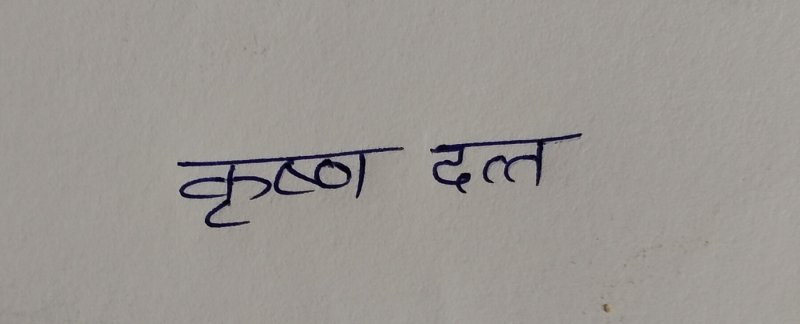 कृष्ण दत्त